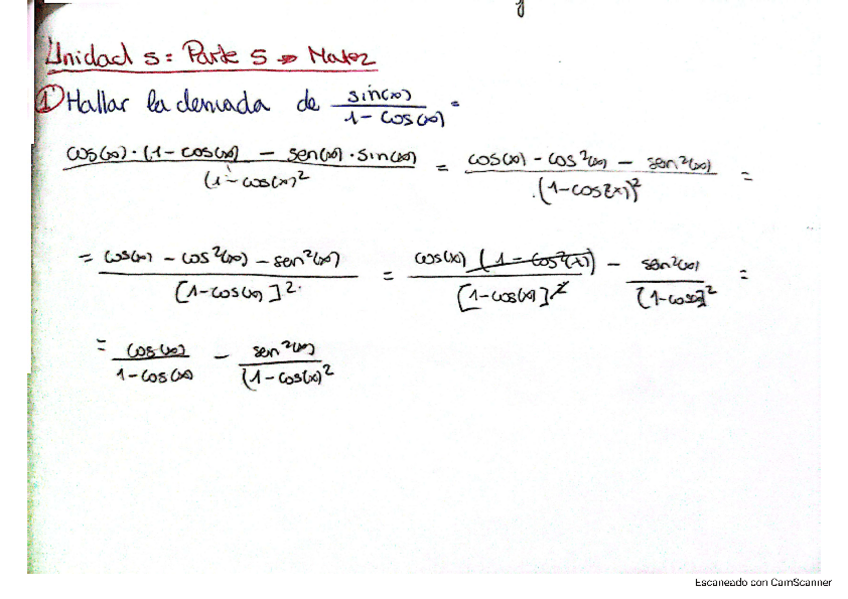 Unidad 5: Parte 5 → Mates
① Hallar la derivada de sin(x) / 1 - cos(x) =
cos(x) · (1 - cos(x) - sen(x) · sin(x) / (1 - cos(x)² = cos(x) - cos²(x) - sen²(x) / (1 - cos(x))² =
= cos(x) - cos²(x) - sen²(x) / [1 - cos(x)]² = cos(x) (1 - cos²(x)) / [1 - cos(x)]² - sen²(x) / [1 - cos(x)]² =
= cos(x) / 1 - cos(x) - sen²(x) / (1 - cos(x)²
Escaneado con CamScanner